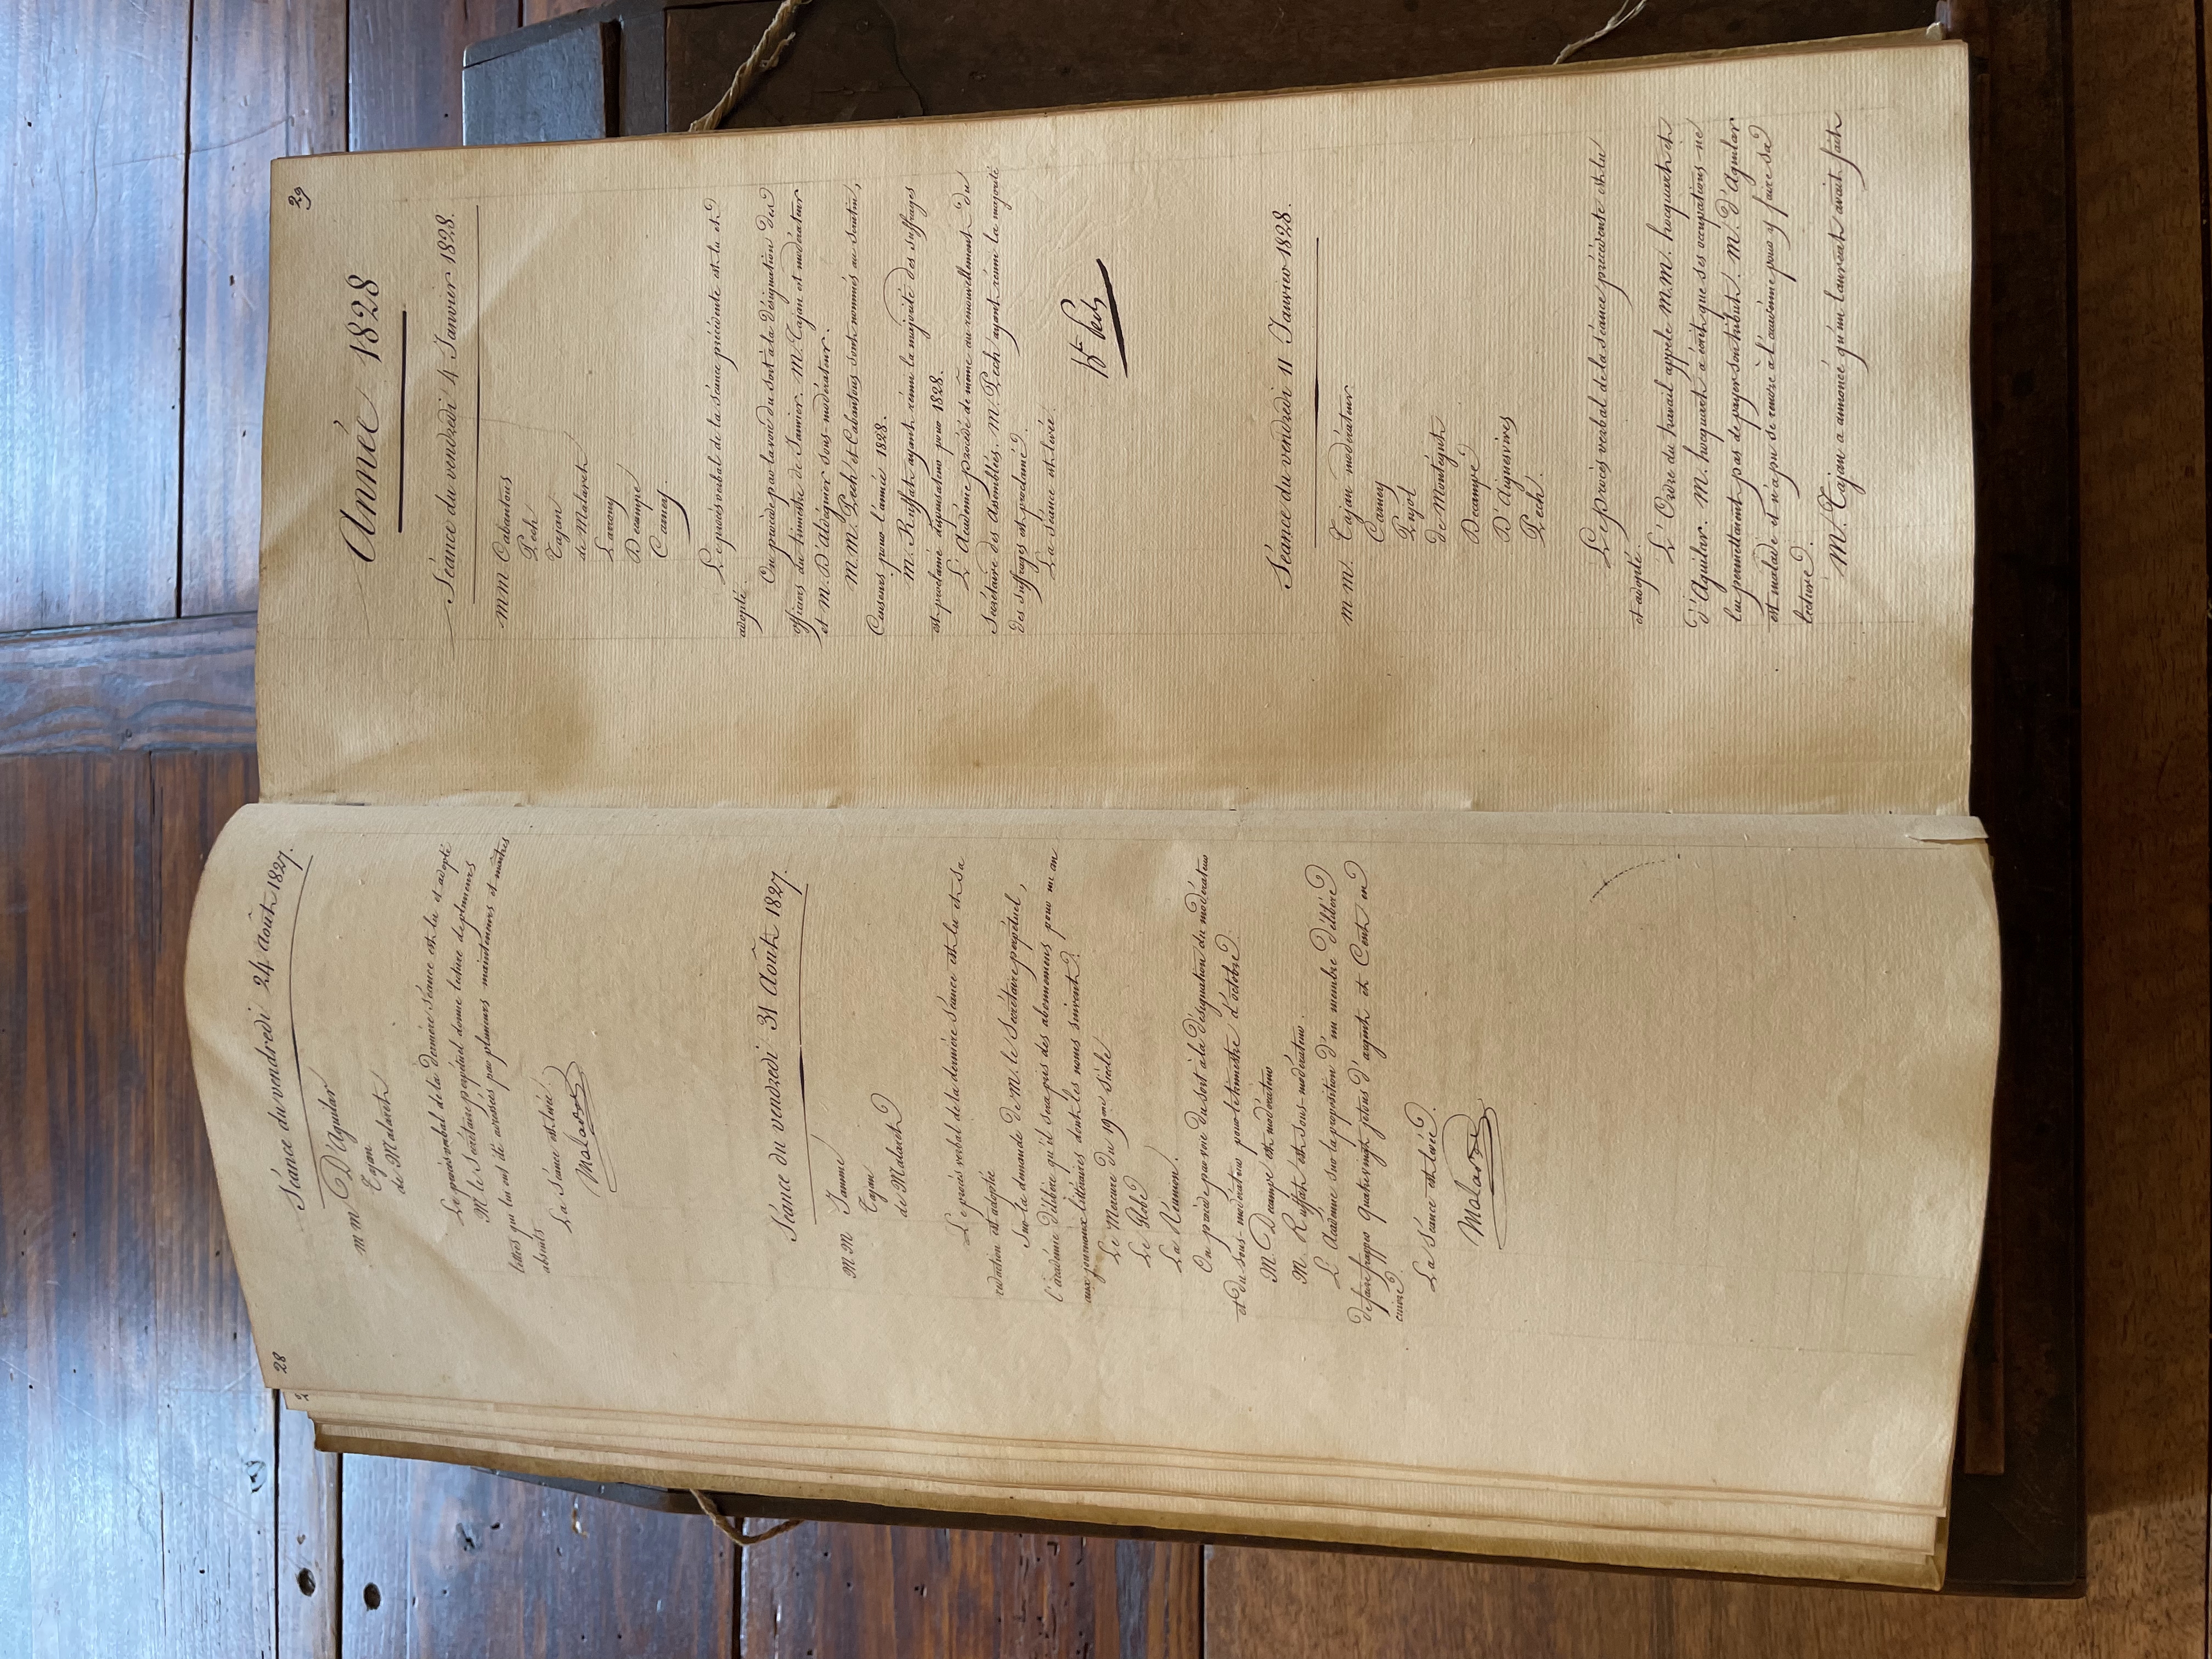 28
Séance du vendredi 24 Août 1827.
m m D'Aguilar
Tajan
de Malaret
Le procès verbal de la dernière séance est lu et adopté
M le Secrétaire perpétuel donne lecture de plusieurs
lettres qui lui ont été adressées par plusieurs mainteneurs et maîtres
absents
La Séance est levée.
Malaret
Séance du vendredi 31 Août 1827.
MM Jamme
Tajan
de Malaret
Le procès verbal de la dernière séance est lu et sa
rédaction est adoptée
Sur la demande de M. le Secrétaire perpétuel,
l'académie délibère qu'il sera pris des abonnemens pour un an
aux journaux littéraires dont les noms suivent.
Le Mercure du 19me Siècle
Le Globe
La Réunion.
On procède par voie du sort à la désignation du modérateur
et du sous-modérateur pour le trimestre d'octobre.
M. Decampe est modérateur
M. Ruffat est sous-modérateur.
L'Académie sur la proposition d'un membre délibère
de faire frapper quatrevingt jetons d'argent et Cent en
cuivre.
La Séance est levée.
Malaret
29
Année 1828
Séance du vendredi 4 Janvier 1828.
mm Cabantous
Pech
Tajan
de Malaret
Larrouy
Decampe
Carney.
Le procès verbal de la séance précédente est lu et
adopté.
On procède par la voie du sort à la désignation des
officiers du trimestre de Janvier. M. Tajan est modérateur
et M. D'aldéguier sous-modérateur.
M.M. Pech et Cabantous sont nommés au scrutin,
Censeurs pour l'année 1828.
M. Ruffat ayant réuni la majorité des suffrages
est proclamé dispensateur pour 1828.
L'Académie procède de même au renouvellement du
Secrétaire des Assemblées. M. Pech ayant réuni la majorité
des suffrages est proclamé.
La séance est levée.
Bin Pech
Séance du vendredi 11 Janvier 1828.
m m. Tajan modérateur
Carney
Pujol
de Montégut
Decampe
D'Aiguesvives
Pech.
Le procès verbal de la séance précédente est lu
et adopté.
L'Ordre du travail appele M.M. hocquart et
d'Aguilar. M. hocquart a écrit que ses occupations ne
lui permettaient pas de payer son tribut. M. d'Aguilar
est malade et n'a pu se rendre à l'académie pour y faire sa
lecture.
M. Tajan a annoncé qu'un laureat avait fait